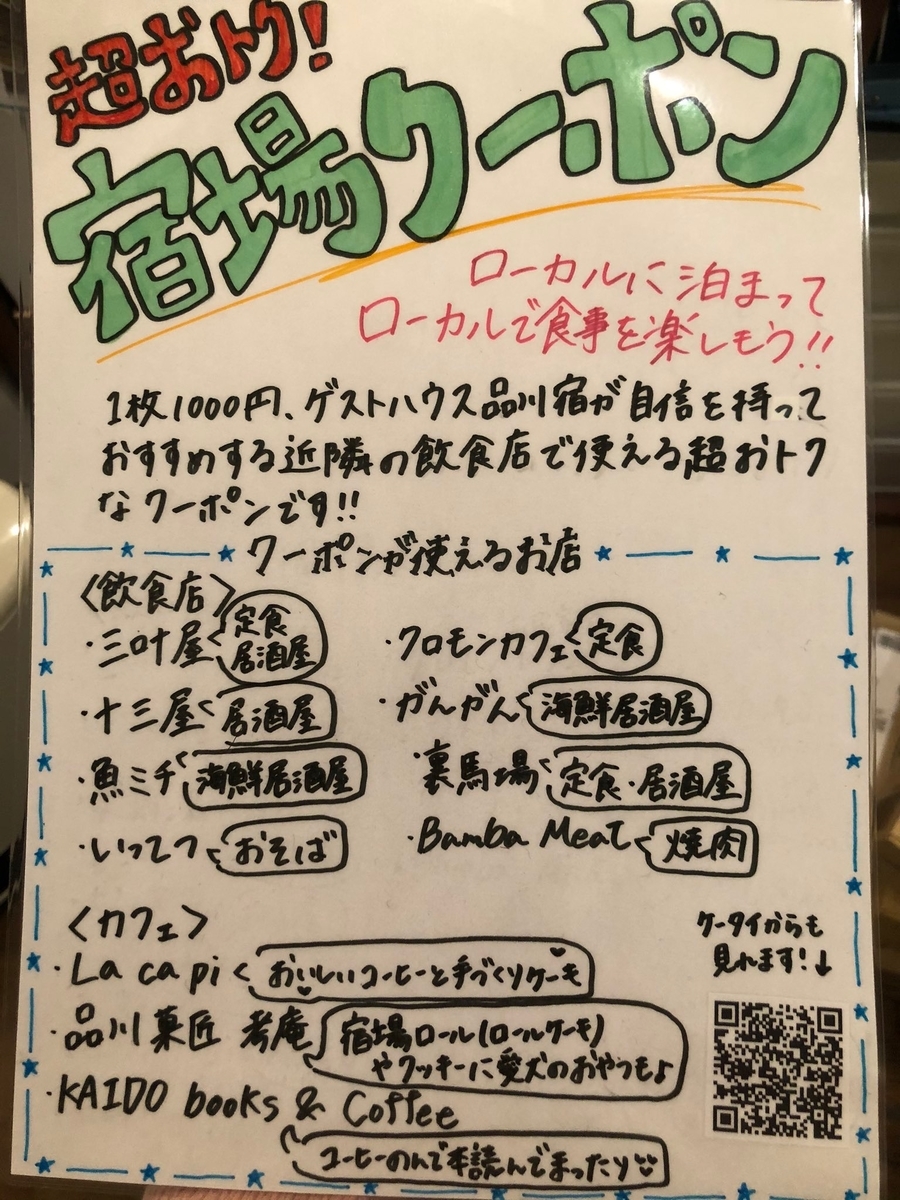 超おトク!
宿場クーポン
ローカルに泊まって
ローカルで食事を楽しもう!!
1枚1000円、ゲストハウス品川宿が自信を持って
おすすめする近隣の飲食店で使える超おトク
なクーポンです!!
クーポンが使えるお店
〈飲食店〉
・三叶屋 定食 居酒屋
・クロモンカフェ 定食
・十三屋 居酒屋
・がんがん 海鮮居酒屋
・魚ミチ 海鮮居酒屋
・裏馬場 定食・居酒屋
・いってつ おそば
・Bamba Meat 焼肉
〈カフェ〉
・La capi おいしいコーヒーと手づくりケーキ
・品川菓匠 考庵 宿場ロール(ロールケーキ)
やクッキーに愛犬のおやつもよ
・KAIDO books & Coffee
コーヒーのんで本読んでまったり
ケータイからも
見れます!↓